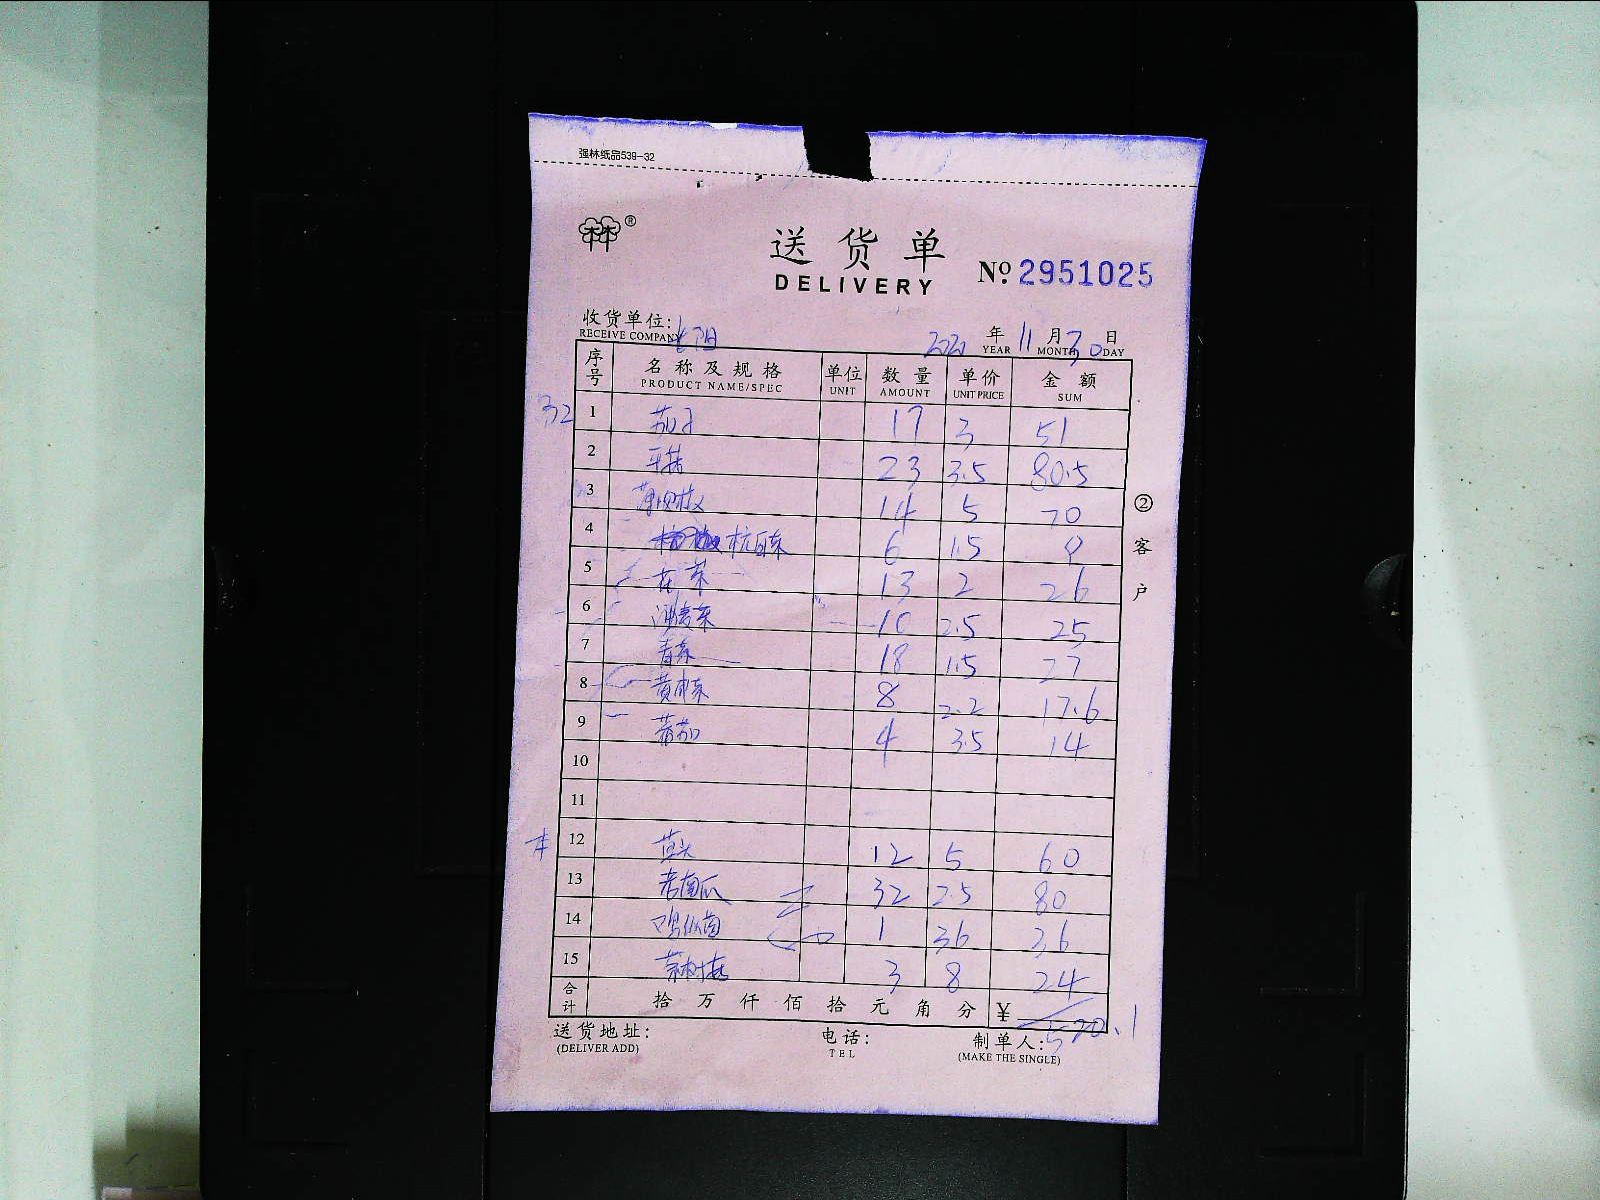 强林纸品539-32
林®
送货单
DELIVERY
No. 2951025
收货单位: 2020 年 11 月 30 日
RECEIVE COMPANY YEAR MONTH DAY
序号 名称及规格 单位 数量 单价 金额
PRODUCT NAME/SPEC UNIT AMOUNT UNIT PRICE SUM
32 1 茄子 17 3 51
2 平菇 23 3.5 80.5
3 14 5 70
4 杭白菜 6 1.5 9
5 花菜 13 2 26
6 油麦菜 10 2.5 25
7 青菜 18 1.5 27
8 黄心菜 8 2.2 17.6
9 蕃茄 4 3.5 14
10
11
12 12 5 60
13 老南瓜 32 2.5 80
14 鸡纵菌 1 36 36
15 茶树菇 3 8 24
合计 拾 万 仟 佰 拾 元 角 分 ¥
520.1
送货地址: 电话: 制单人:
(DELIVER ADD) TEL (MAKE THE SINGLE)
②客户